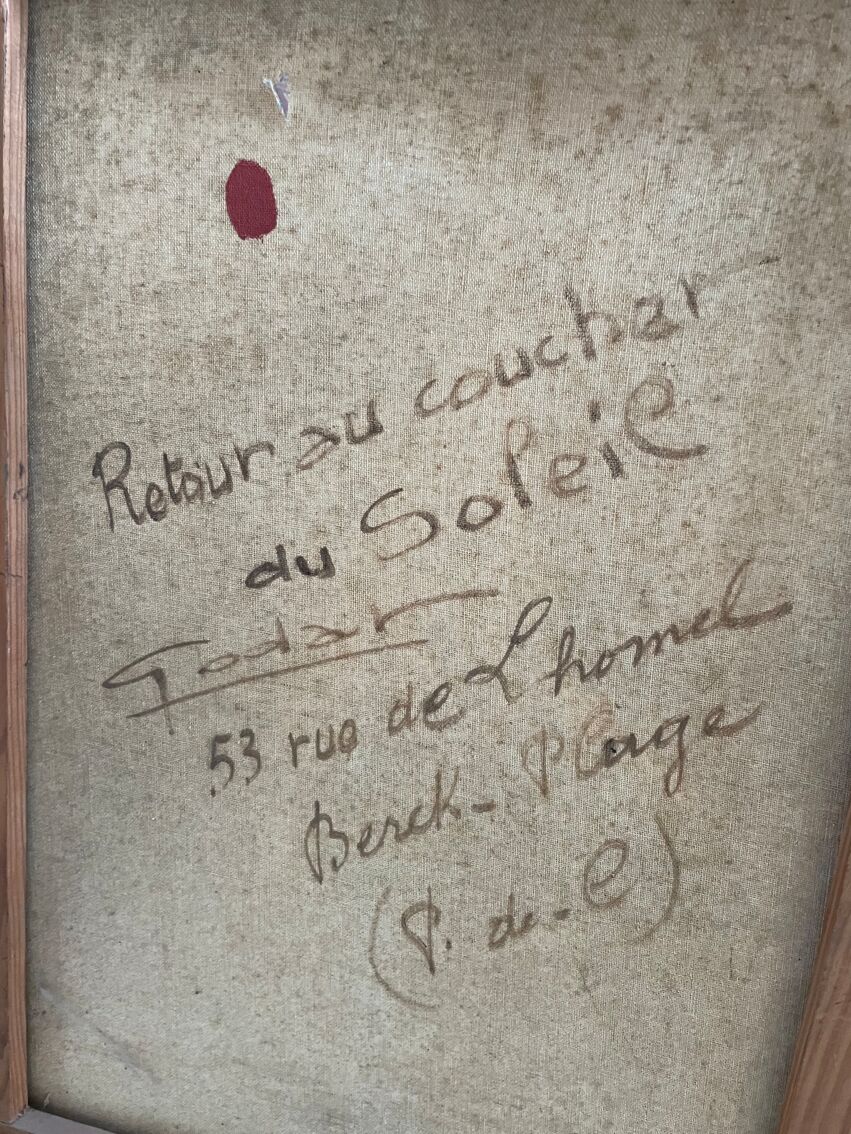 Retour au coucher
du Soleil
Godar
53 rue de Lhomel
Berck - Plage
(P. de - C)